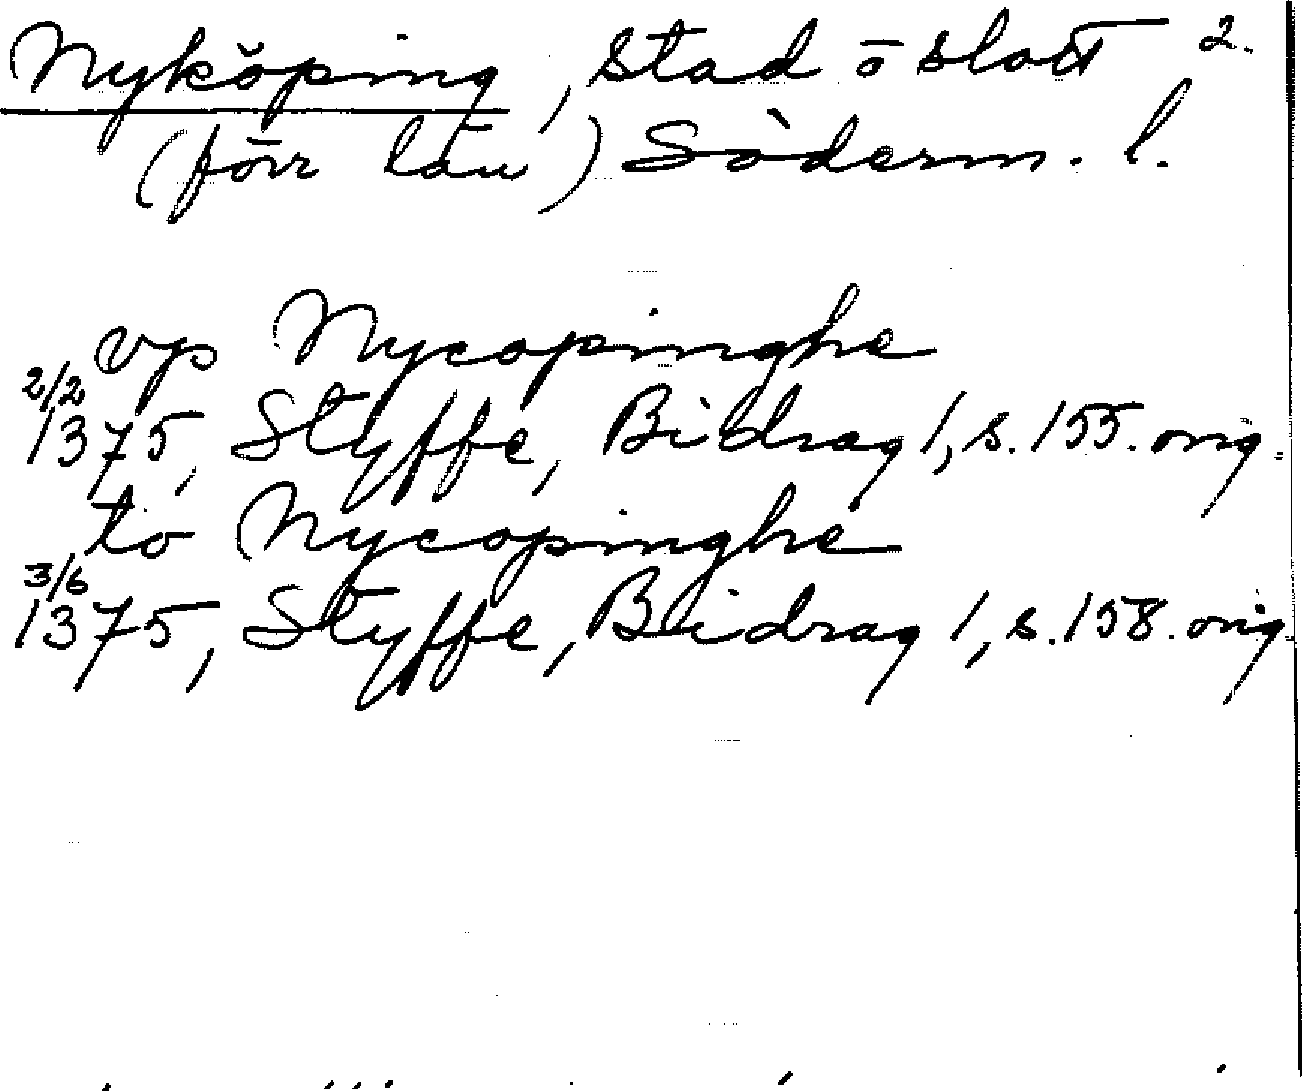 Nyköping, stad o slott 2.
(förr län) Söderm. l.
vp Nycopinghe
2/2
1375, Styffe, Bidrag 1, s. 155. orig.
to Nycopinghe
3/6
1375, Styffe, Bidrag 1, s. 158. orig.